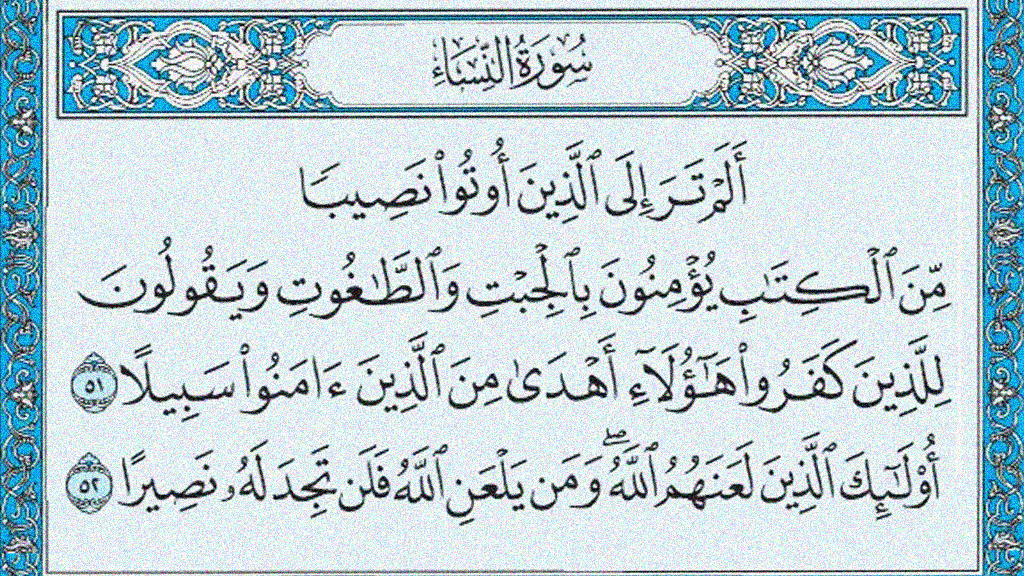 سُورَةُ النِّسَاءِ
أَلَمْ تَرَ إِلَى ٱلَّذِينَ أُوتُوا۟ نَصِيبًا
مِّنَ ٱلْكِتَٰبِ يُؤْمِنُونَ بِٱلْجِبْتِ وَٱلطَّٰغُوتِ وَيَقُولُونَ
لِلَّذِينَ كَفَرُوا۟ هَٰٓؤُلَآءِ أَهْدَىٰ مِنَ ٱلَّذِينَ ءَامَنُوا۟ سَبِيلًا ٥١
أُو۟لَٰٓئِكَ ٱلَّذِينَ لَعَنَهُمُ ٱللَّهُ ۖ وَمَن يَلْعَنِ ٱللَّهُ فَلَن تَجِدَ لَهُۥ نَصِيرًا ٥٢